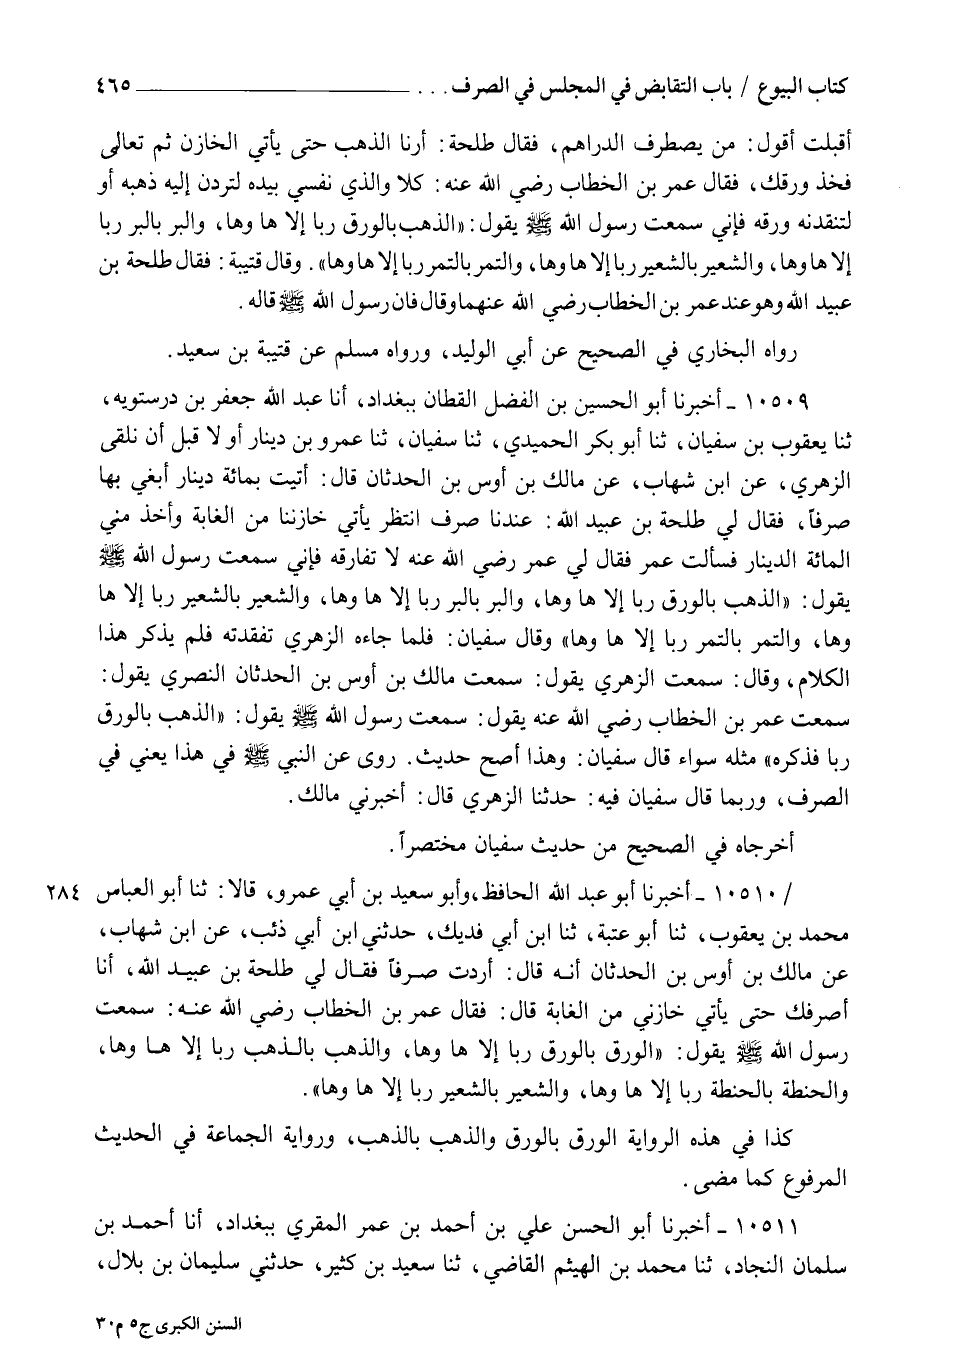 كتاب البيوع / باب التقابض في المجلس في الصرف . . . ٤٦٥
أقبلت أقول: من يصطرف الدراهم، فقال طلحة: أرنا الذهب حتى يأتي الخازن ثم تعالى
فخذ ورقك، فقال عمر بن الخطاب رضي الله عنه: كلا والذي نفسي بيده لتردن إليه ذهبه أو
لتنقدنه ورقه فإني سمعت رسول الله ﷺ يقول: «الذهب بالورق ربا إلا ها وها، والبر بالبر ربا
إلا ها وها، والشعير بالشعير ربا إلا ها وها، والتمر بالتمر ربا إلا ها وها». وقال قتيبة: فقال طلحة بن
عبيد الله وهو عند عمر بن الخطاب رضي الله عنهما وقال فان رسول الله ﷺ قاله.
رواه البخاري في الصحيح عن أبي الوليد، ورواه مسلم عن قتيبة بن سعيد.
١٠٥٠٩ ـ أخبرنا أبو الحسين بن الفضل القطان ببغداد، أنا عبد الله جعفر بن درستويه،
ثنا يعقوب بن سفيان، ثنا أبو بكر الحميدي، ثنا سفيان، ثنا عمرو بن دينار أو لا قبل أن نلقى
الزهري، عن ابن شهاب، عن مالك بن أوس بن الحدثان قال: أتيت بمائة دينار أبغي بها
صرفاً، فقال لي طلحة بن عبيد الله: عندنا صرف انتظر يأتي خازننا من الغابة وأخذ مني
المائة الدينار فسألت عمر فقال لي عمر رضي الله عنه لا تفارقه فإني سمعت رسول الله ﷺ
يقول: «الذهب بالورق ربا إلا ها وها، والبر بالبر ربا إلا ها وها، والشعير بالشعير ربا إلا ها
وها، والتمر بالتمر ربا إلا ها وها» وقال سفيان: فلما جاءه الزهري تفقدته فلم يذكر هذا
الكلام، وقال: سمعت الزهري يقول: سمعت مالك بن أوس بن الحدثان النصري يقول:
سمعت عمر بن الخطاب رضي الله عنه يقول: سمعت رسول الله ﷺ يقول: «الذهب بالورق
ربا فذكره» مثله سواء قال سفيان: وهذا أصح حديث. روى عن النبي ﷺ في هذا يعني في
الصرف، وربما قال سفيان فيه: حدثنا الزهري قال: أخبرني مالك.
أخرجاه في الصحيح من حديث سفيان مختصراً.
/ ١٠٥١٠ ـ أخبرنا أبو عبد الله الحافظ، وأبو سعيد بن أبي عمرو، قالا: ثنا أبو العباس ٢٨٤
محمد بن يعقوب، ثنا أبو عتبة، ثنا ابن أبي فديك، حدثني ابن أبي ذئب، عن ابن شهاب،
عن مالك بن أوس بن الحدثان أنه قال: أردت صرفاً فقال لي طلحة بن عبيد الله، أنا
أصرفك حتى يأتي خازني من الغابة قال: فقال عمر بن الخطاب رضي الله عنه: سمعت
رسول الله ﷺ يقول: «الورق بالورق ربا إلا ها وها، والذهب بالذهب ربا إلا ها وها،
والحنطة بالحنطة ربا إلا ها وها، والشعير بالشعير ربا إلا ها وها».
كذا في هذه الرواية الورق بالورق والذهب بالذهب، ورواية الجماعة في الحديث
المرفوع كما مضى.
١٠٥١١ ـ أخبرنا أبو الحسن علي بن أحمد بن عمر المقري ببغداد، أنا أحمد بن
سلمان النجاد، ثنا محمد بن الهيثم القاضي، ثنا سعيد بن كثير، حدثني سليمان بن بلال،
السنن الكبرى ج٥ م٣٠